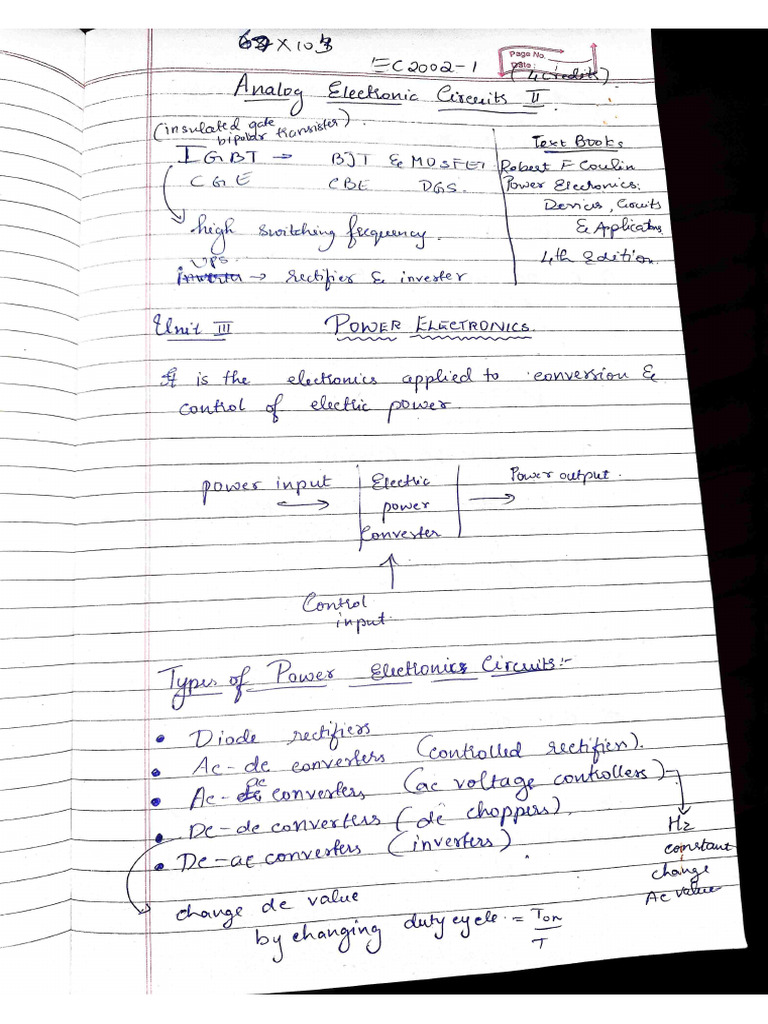 X 103
EC2002-1
Page No.
Date:
(4 Credits)
Analog Electronic Circuits II
(insulated gate
bipolar transister).
IGBT → BJT & MOSFET
CGE CBE DGS.
high switching frequency.
UPS
→ rectifier & inverter
Text Books
Robert F Coulin
Power Electronics:
Devices, Circuits
& Applications
4th Edition.
Unit III POWER ELECTRONICS.
It is the electronics applied to conversion &
control of electric power.
power input
Electric
power
Converter
Power output.
Control
input.
Types of Power Electronics Circuits:-
• Diode rectifiers
• Ac-dc converters (controlled rectifiers).
• Ac-ac converters (ac voltage controllers)
• Dc-dc converters (dc choppers).
• Dc-ac converters (inverters)
Hz
constant
change
Ac value
change dc value
by changing dutycycle = Ton
T